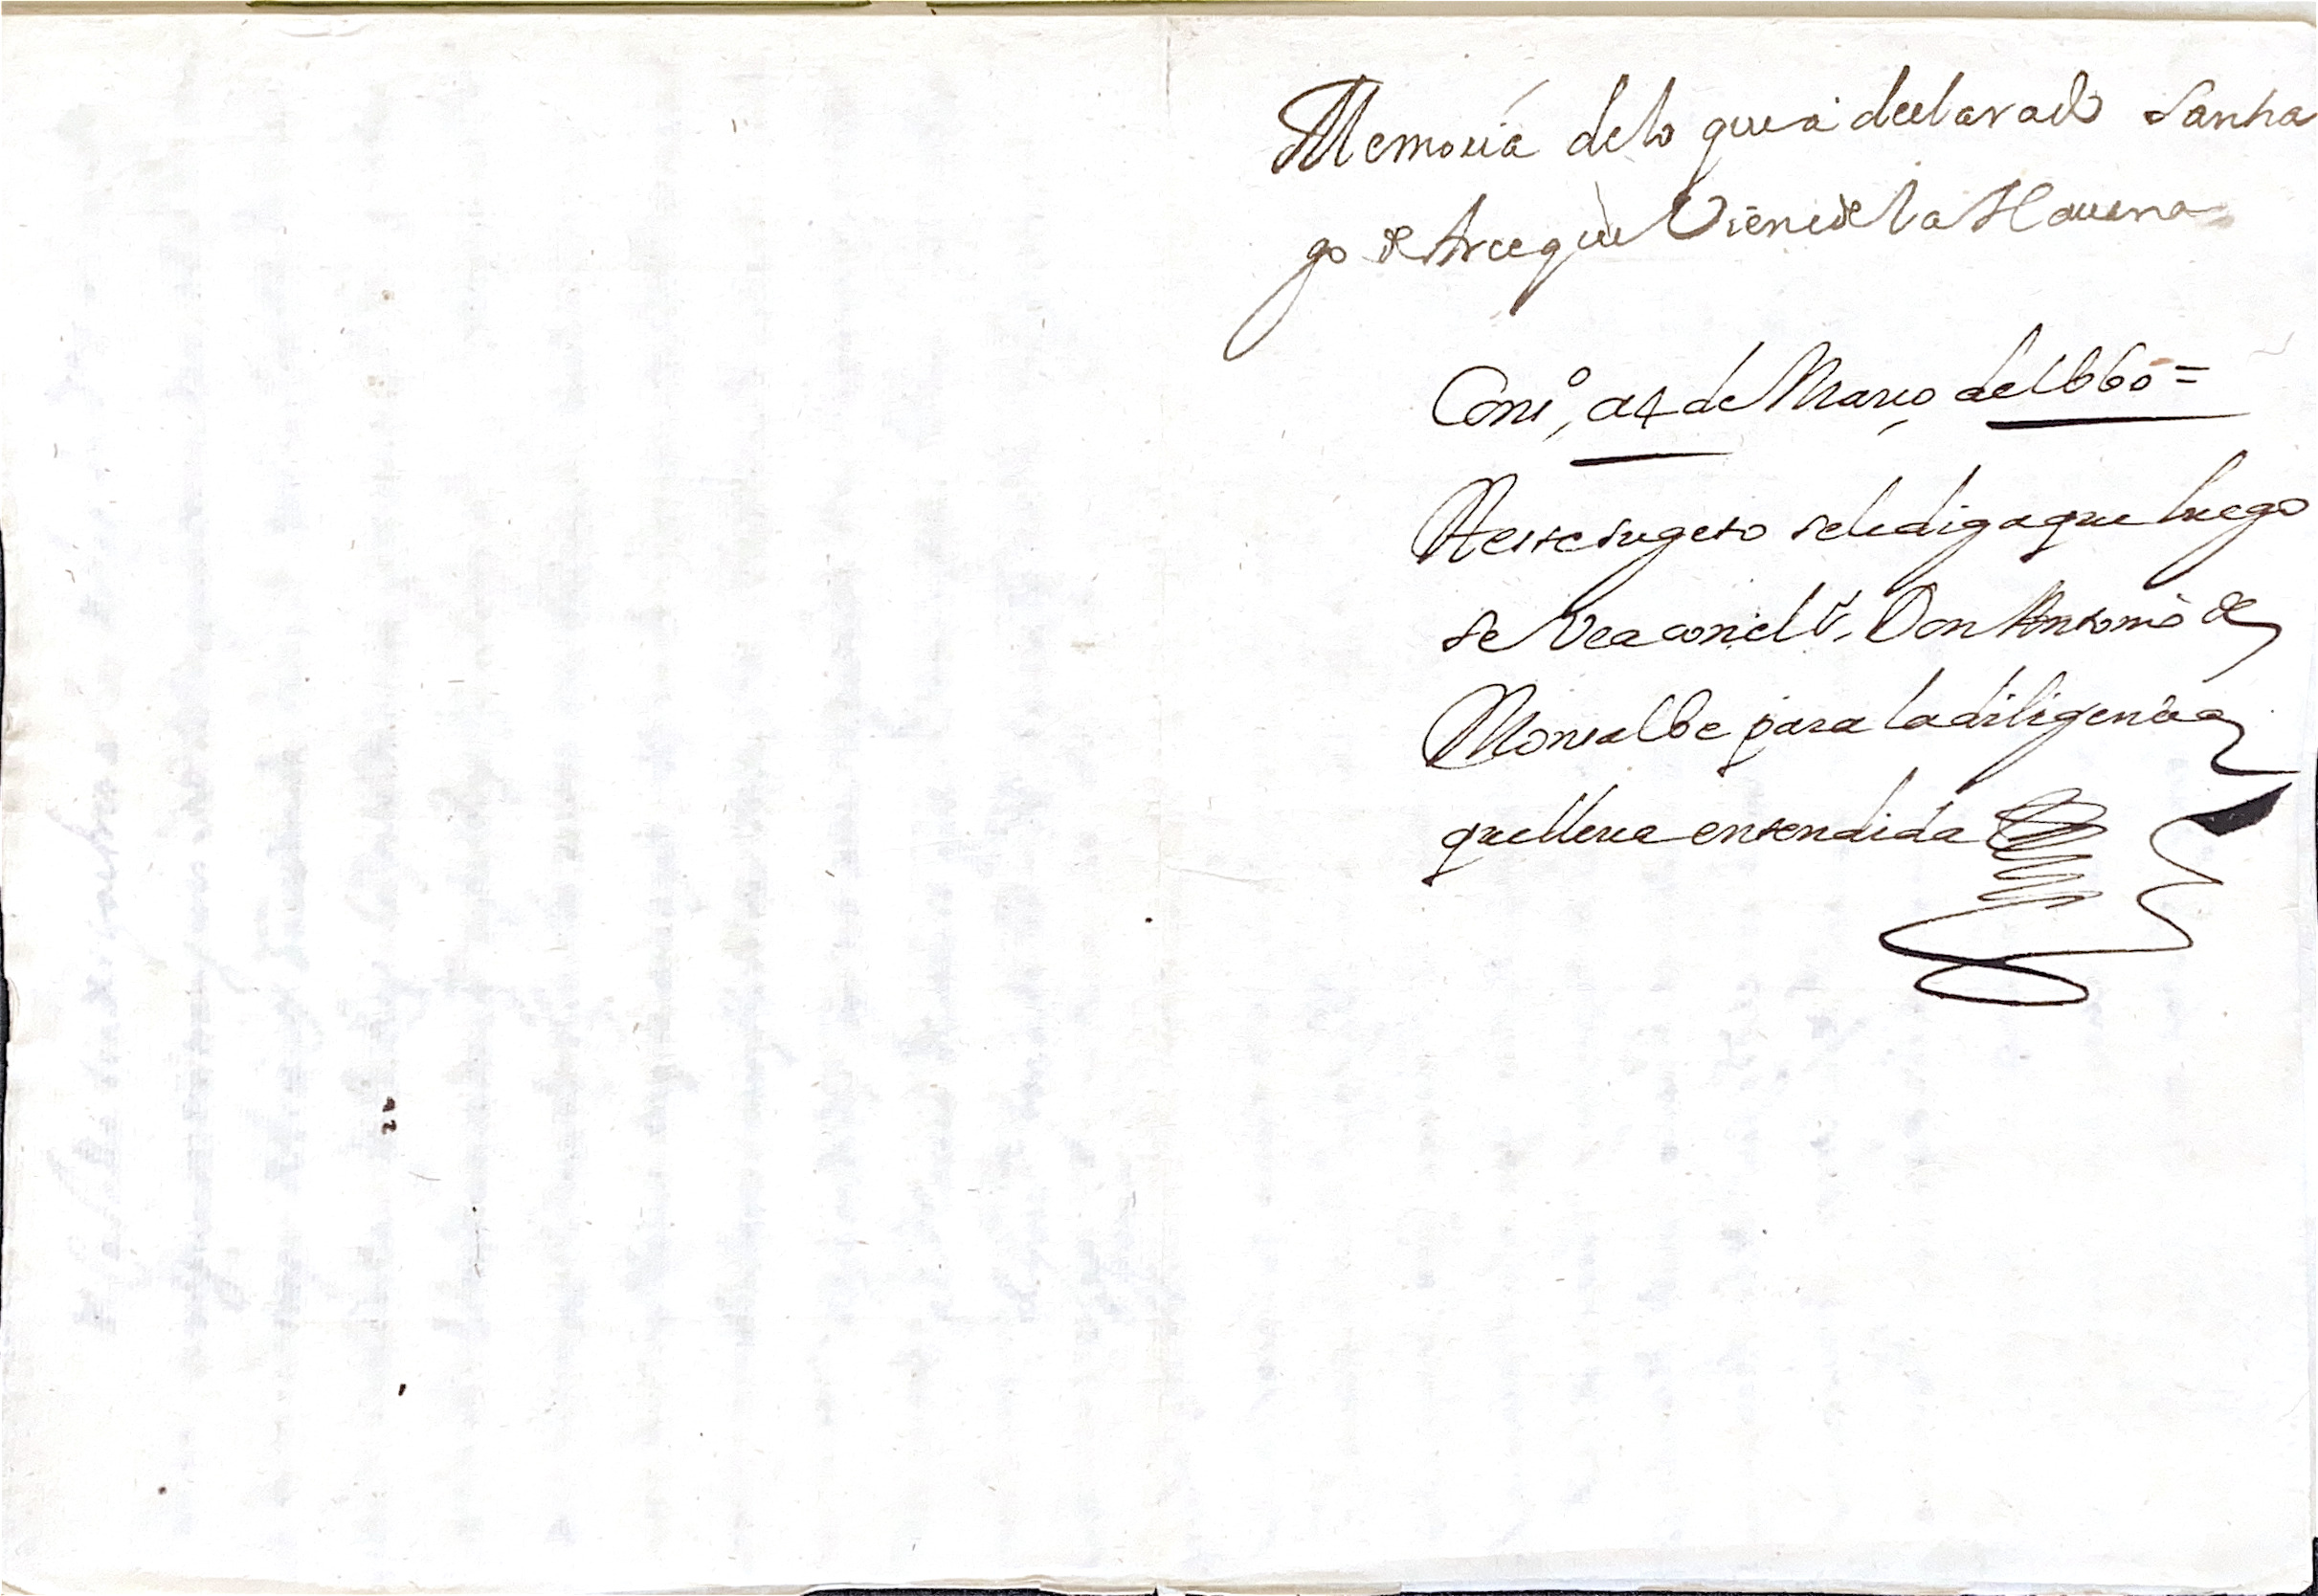 Memoria delo que a declarado Santia
go de Arce que Viene de la Hauana
Conss.º, a 4 de Março de 1660 =
A esse sugeto se le diga que luego
se Vea con el s.r Don Antonio de
Monsalbe para la diligencia
que lleua entendida